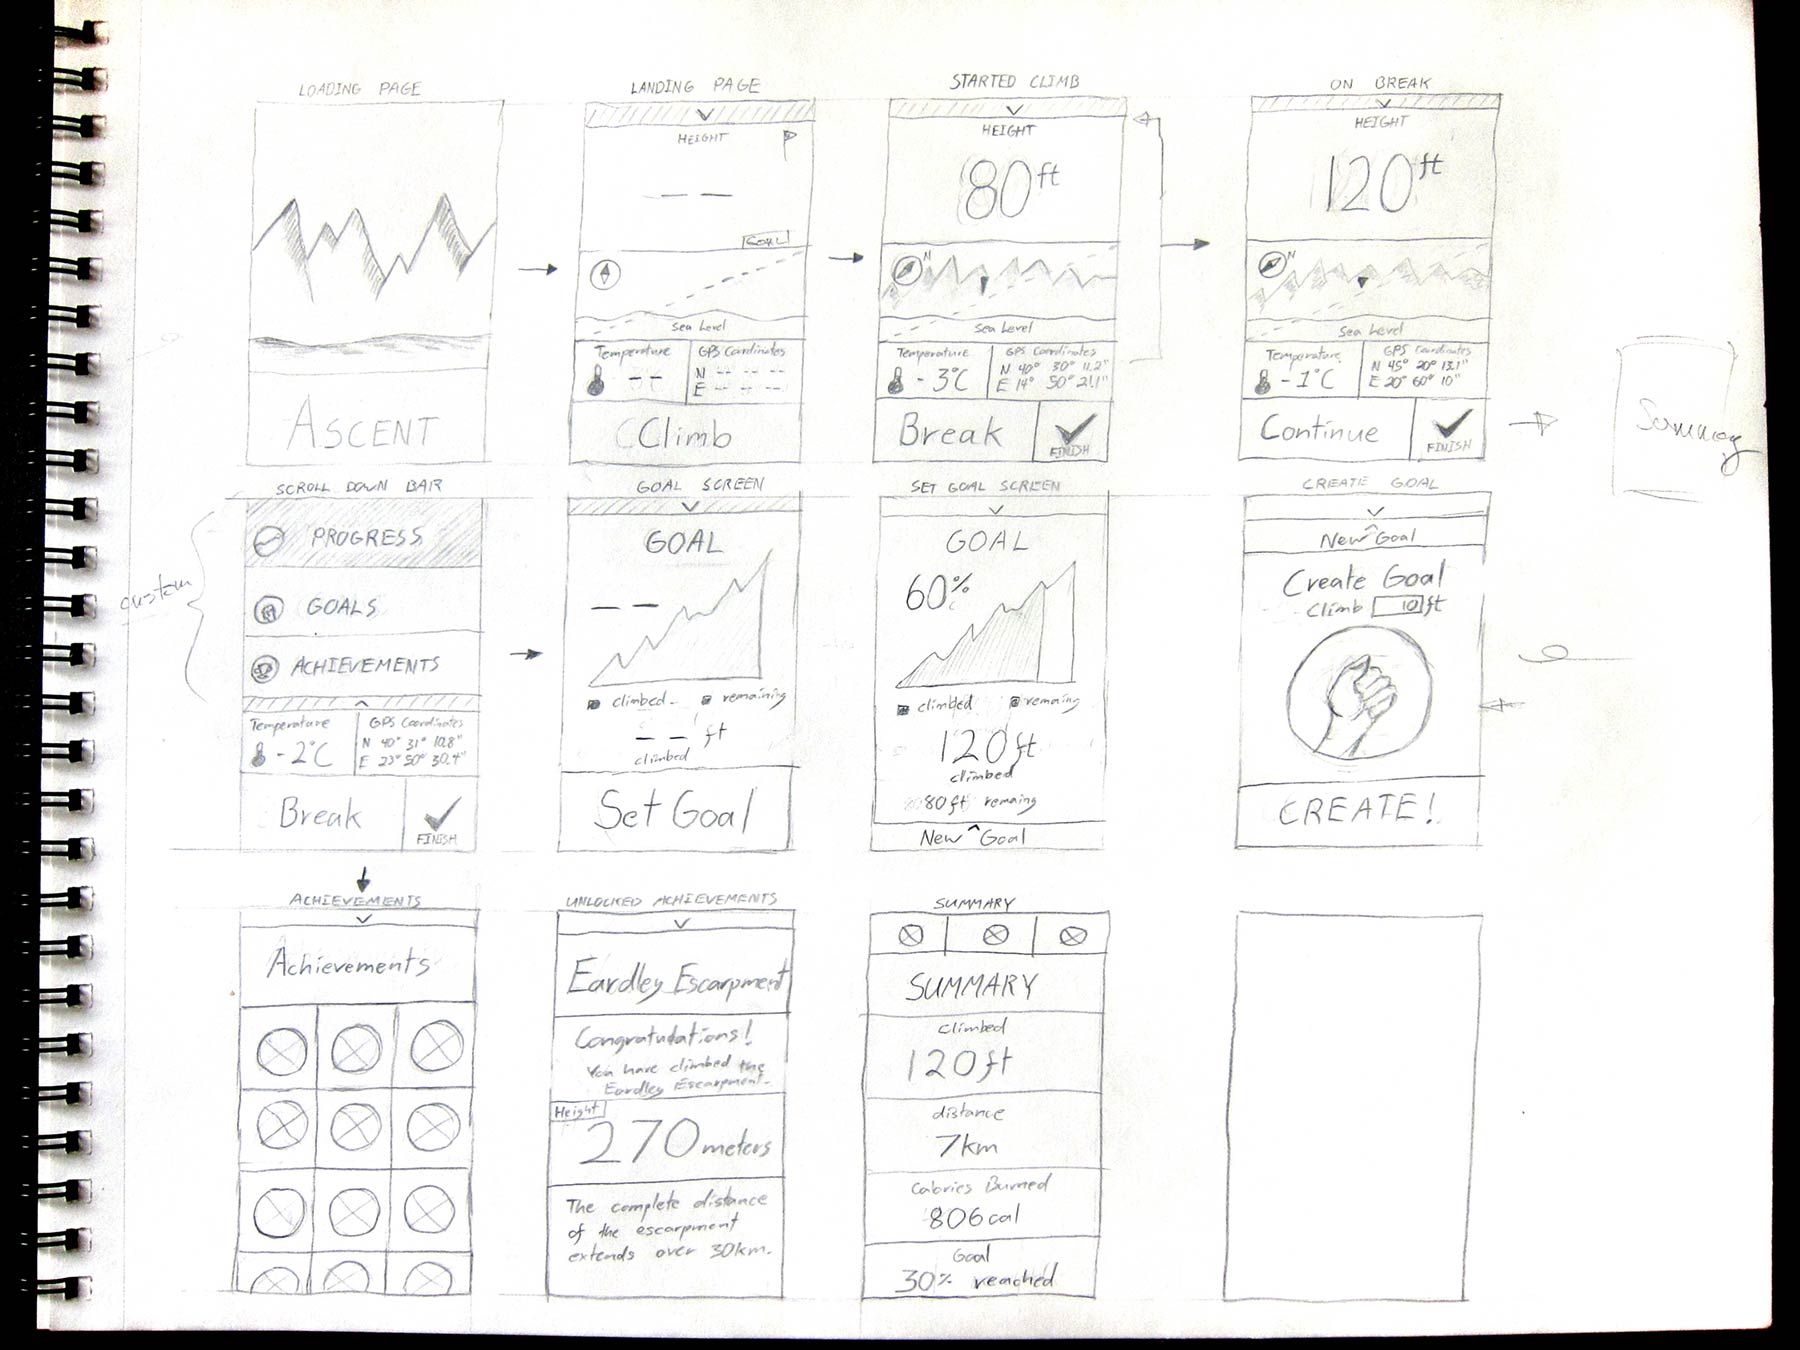 LOADING PAGE
ASCENT
LANDING PAGE
HEIGHT
-- --
GOAL
Sea Level
Temperature
--
GPS Coordinates
N -- -- --
E -- -- --
Climb
STARTED CLIMB
HEIGHT
80ft
N
Sea Level
Temperature
-3°C
GPS Coordinates
N 40° 30° 11.2"
E 14° 50° 21.1"
Break
FINISH
ON BREAK
HEIGHT
120ft
N
Sea Level
Temperature
-1°C
GPS Coordinates
N 45° 20° 13.1"
E 20° 60° 10"
Continue
FINISH
Summary
SCROLL DOWN BAR
custom
PROGRESS
GOALS
ACHIEVEMENTS
Temperature
-2°C
GPS Coordinates
N 40° 31° 10.8"
E 23° 50° 30.4"
Break
FINISH
GOAL SCREEN
GOAL
-- --
climbed
remaining
-- -- ft
climbed
Set Goal
SET GOAL SCREEN
GOAL
60%
climbed
remaining
120ft
climbed
80ft remaing
New Goal
CREATE GOAL
New Goal
Create Goal
Climb 10 ft
CREATE!
ACHIEVEMENTS
Achievements
UNLOCKED ACHIEVEMENTS
Eardley Escarpment
Congratudations!
You have climbed the
Eardley Escarpment.
Height
270 meters
The complete distance
of the escarpment
extends over 30km.
SUMMARY
SUMMARY
climbed
120ft
distance
7km
Calories Burned
806cal
Goal
30% reached